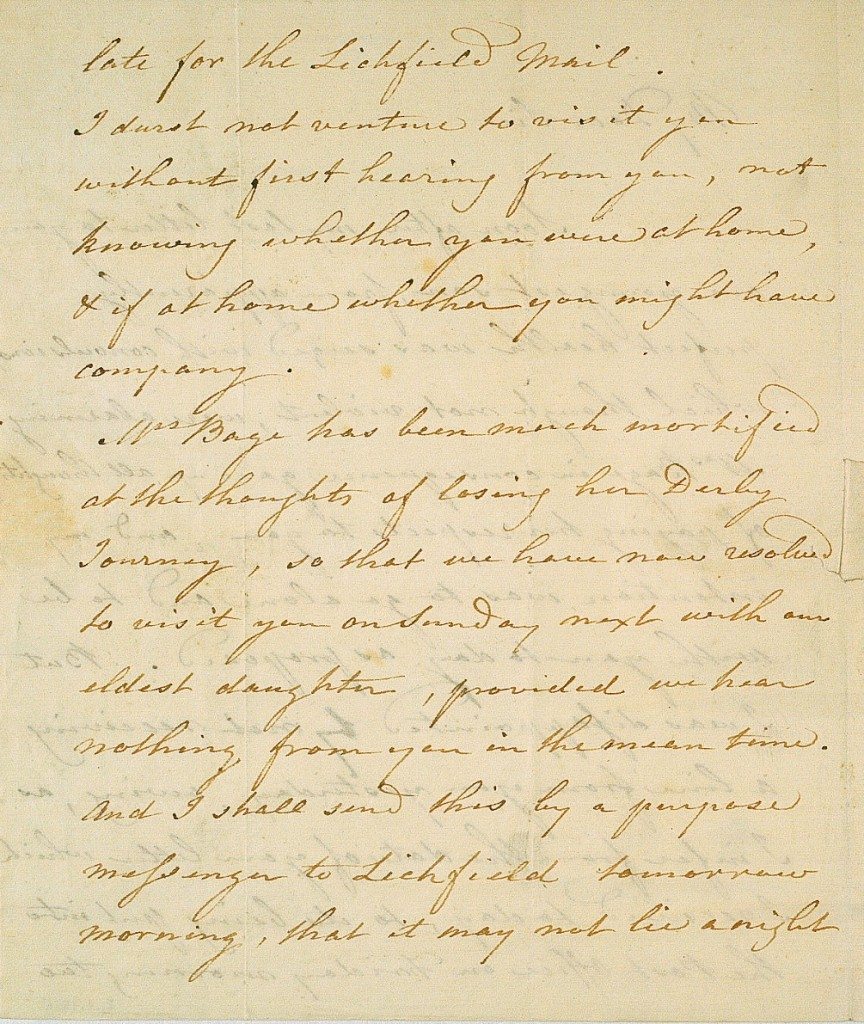 late for the Lichfield Mail.
I durst not venture to visit you
without first hearing from you, not
knowing whether you were at home,
& if at home whether you might have
company.
Mrs Bage has been much mortified
at the thoughts of losing her Derby
Journey, so that we have now resolved
to visit you on Sunday next with our
eldest daughter, provided we hear
nothing from you in the mean time.
And I shall send this by a purpose
messenger to Lichfield tomorrow
morning, that it may not lie a night